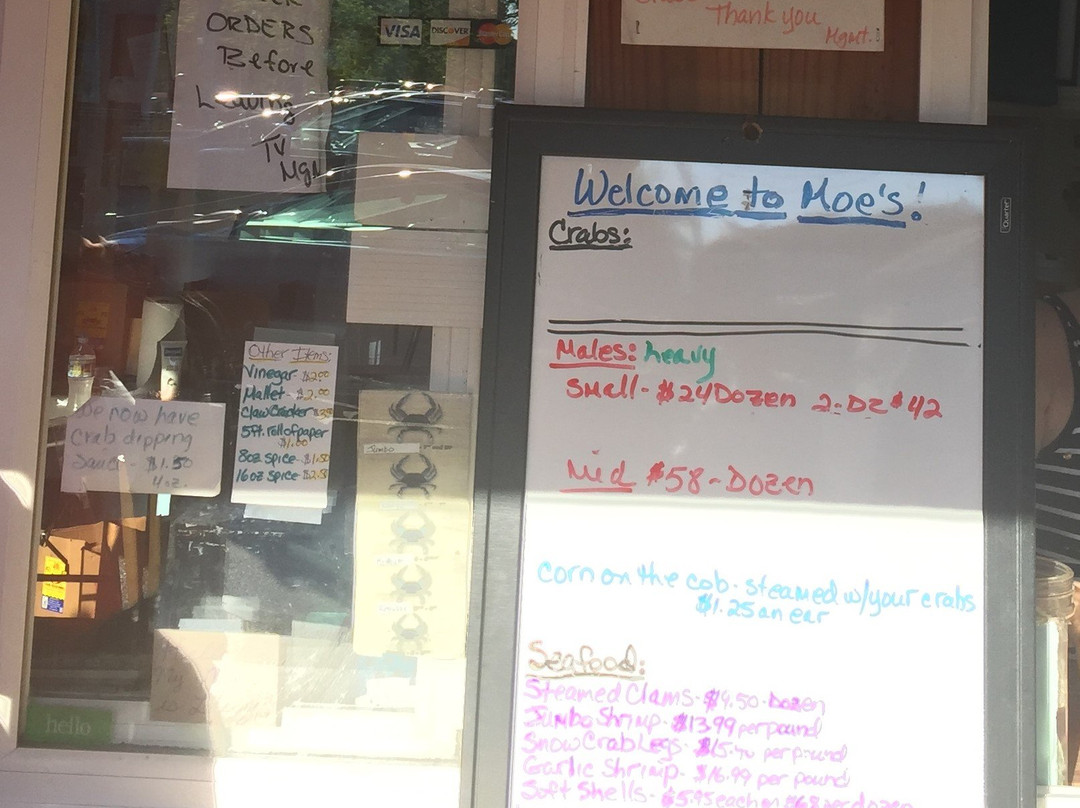 ORDERS
Before
Leaving
TV
Mgn
VISA DISCOVER
Thank you
Mgmt.
Welcome to Moe's!
Crabs:
Males: heavy
Small - $24 Dozen 2-DZ $42
Mid $58 - Dozen
corn on the cob - steamed w/your crabs
$1.25 an ear
Seafood:
Steamed Clams -
Jumbo Shrimp - $13.99 per pound
Snow Crab Legs - per pound
Garlic Shrimp - $16.99 per pound
Soft Shells - $5.95 each or
Other Items:
Vinegar - $2.00
Mallet - $2.00
Claw Cracker
5ft. roll of paper
$1.00
8oz spice - $1.50
16oz spice
We now have
Crab dipping
Sauce - $1.50
4oz.
Jumbo
hello
Quartet